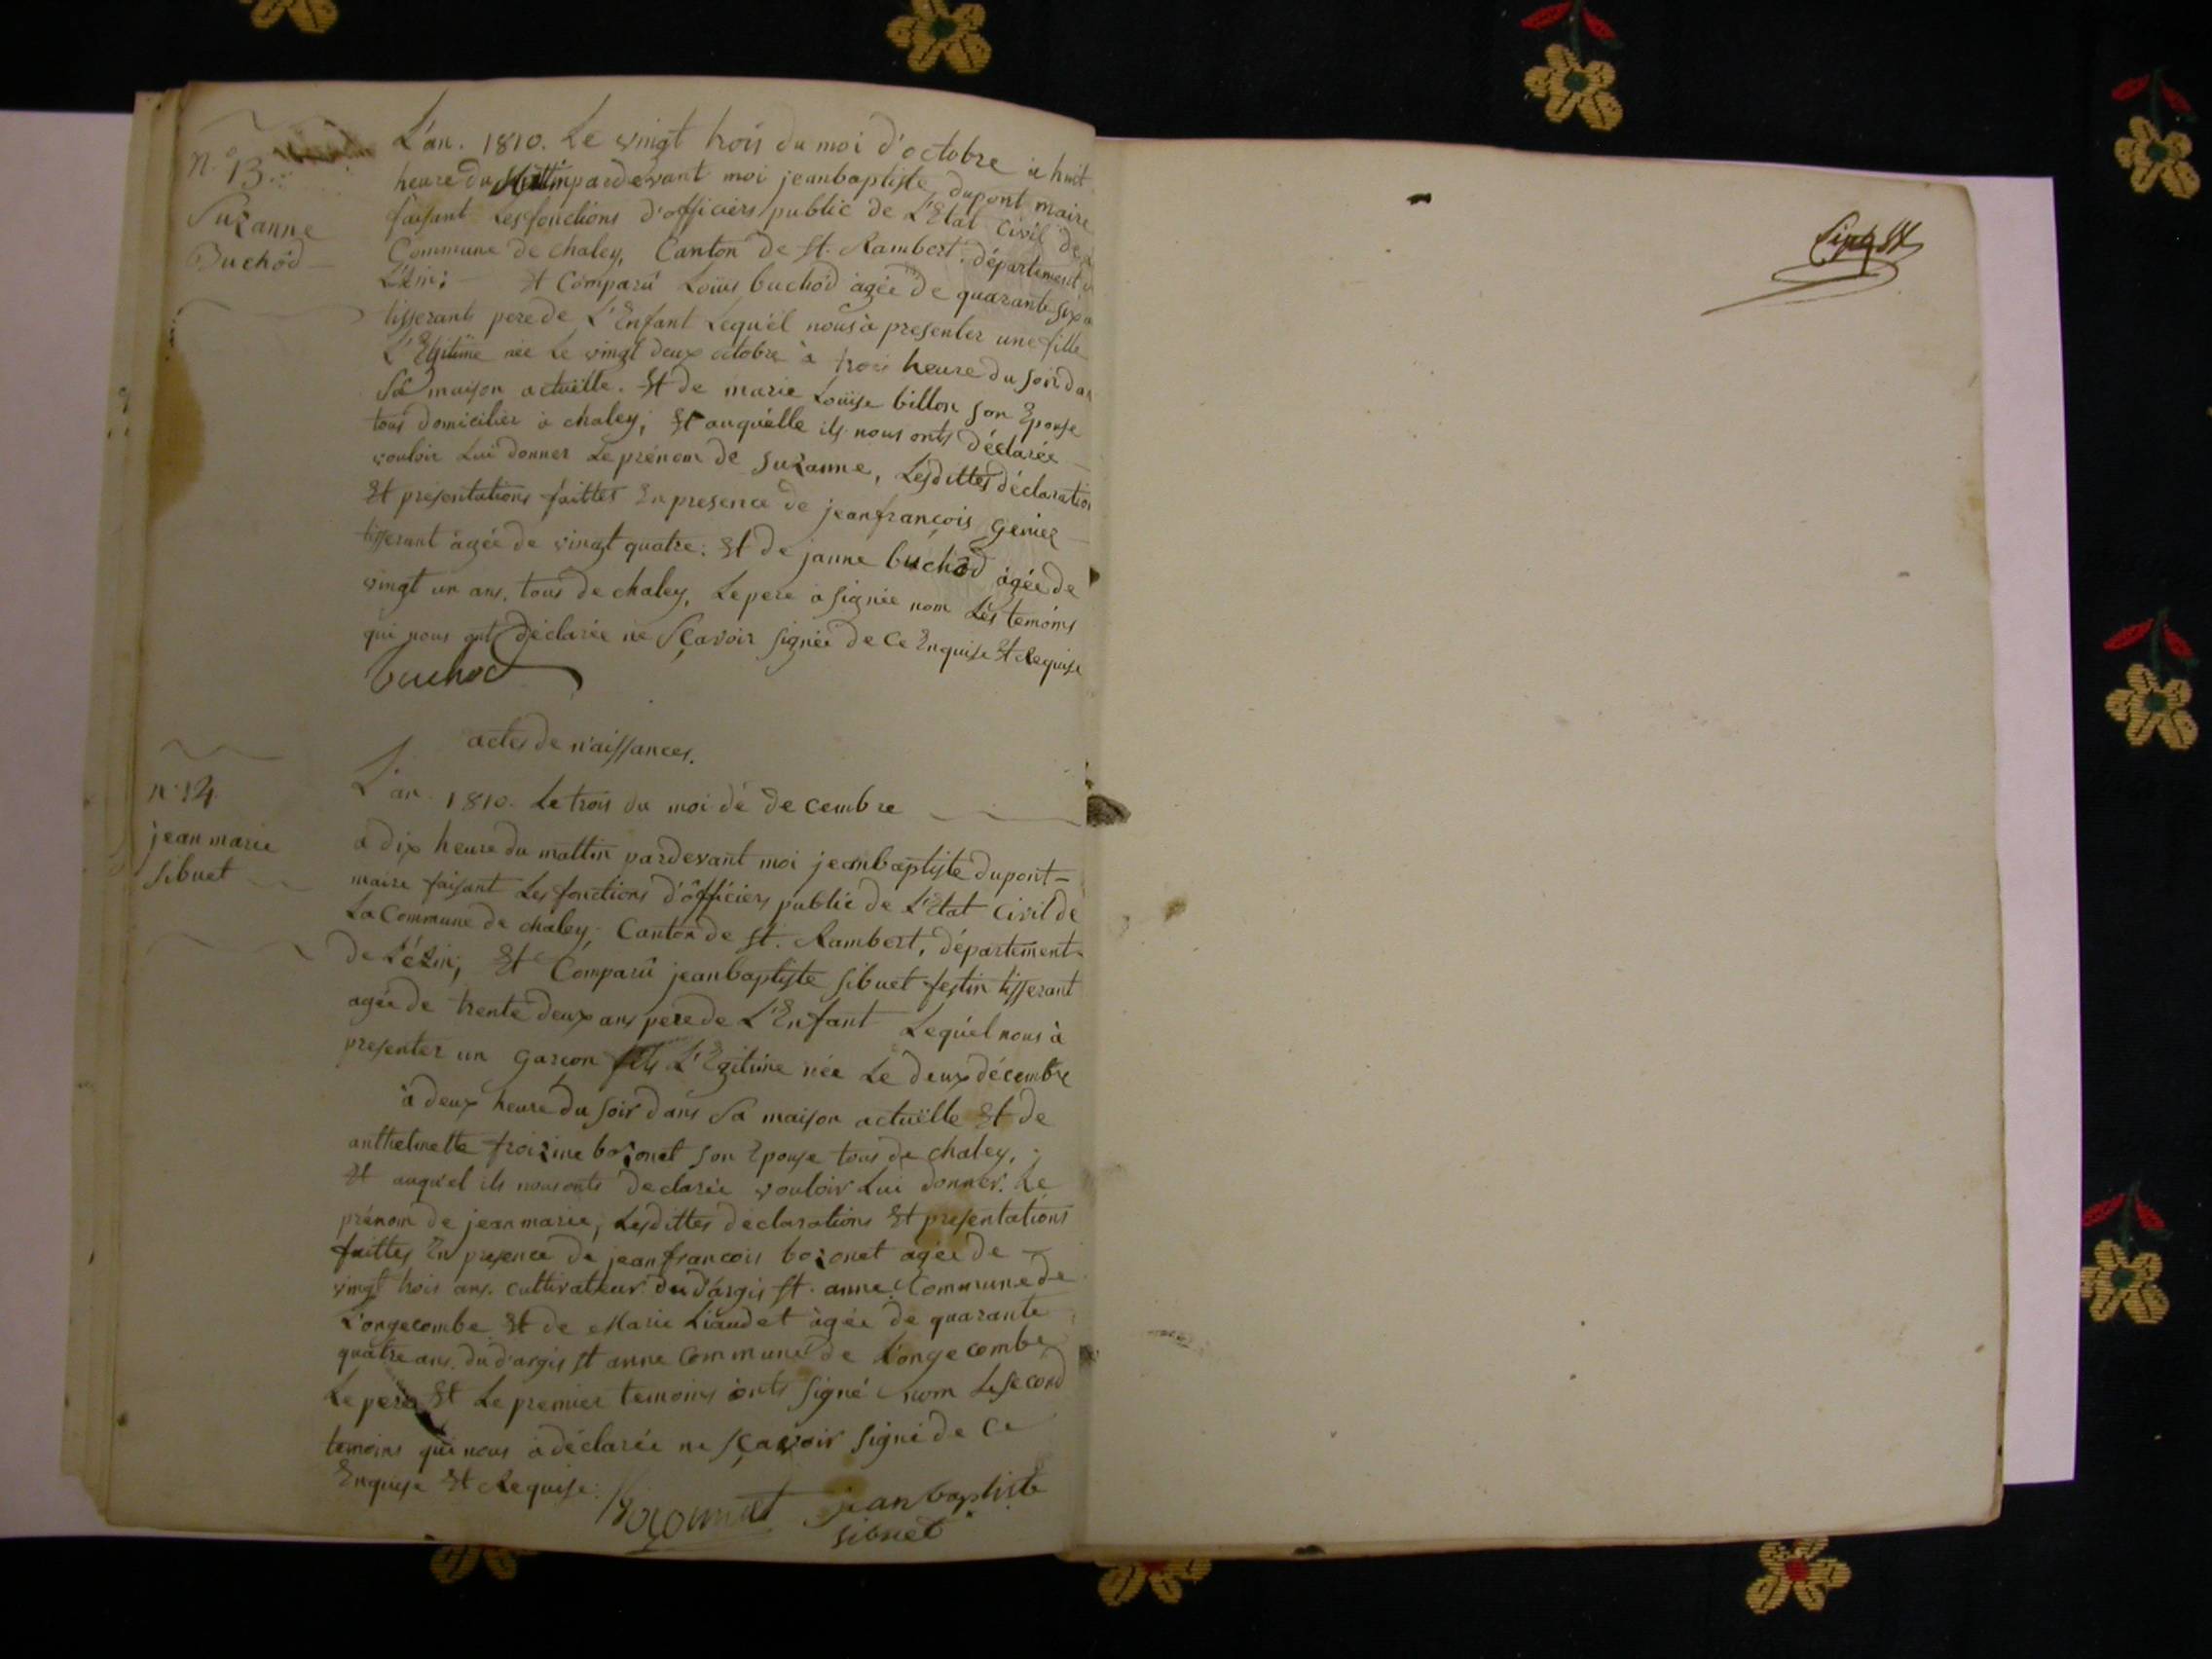 N.o 13.
Suzanne
Buchod
L'an. 1810. Le vingt trois du moi d'octobre à huit
heure du Mattin pardevant moi jeanbaptiste dupont maire
faisant Les fonctions d'officiers public de L'Etat Civil de
Commune de chaley, Canton de St. Rambert. département
L'ésin; Et Comparû Louis buchod agée de quarante six a
tisserant pere de L'Enfant Lequ'el nous à presenter une fille
L'Egitime née Le vingt deux octobre à trois heure du soir dan
Sa maison actuëlle. Et de marie Louïse billon son Epouse
tous domicilier à chaley; Et auqu'elle ils nous onts déclarée
vouloir Lui donner Le prénom de Suzanne, Lesdittes déclaration
Et présentations faittes En presence de jeanfrançois genier
tisserant àgée de vingt quatre. Et de janne buchod àgée de
vingt un ans, tous de chaley, Le pere à signée nom Les temoins
qui nous ont déclarée ne Sçavoir signée de Ce Enquise Et Requise
buchod
actes de n'aissances.
n.o 14.
jean marie
sibuet
L'an. 1810. Le trois du moi dé decembre
a dix heure du mattin pardevant moi jeanbaptiste dupont
maire faisant Les fonctions d'officiers public de L'Etat Civil de
La Commune de chaley. Canton de St. Rambert, département
de L'ésin; Et Comparû jeanbaptiste sibuet festin tisserant
agée de trente deux ans pere de L'Enfant Lequ'el nous à
presenter un garçon fils L'Egitime née Le deux décembre
à deux heure du soir dans Sa maison actuëlle Et de
anthelmette froisine bozonet son Epouse tous de chaley,
Et auqu'el ils nous onts declarée vouloir Lui donner. Le
prénom de jean marie, Lesdittes declarations Et presentations
faittes En presence de jeanfrancois bozonet agée de
vingt trois ans. cultivateur du d'argis st. anne Commune de
L'ongecombe Et de Marie Liaudet àgée de quarante
quatre ans. du d'argis st anne Commune de L'ongecombe
Le pere Et Le premier temoins onts signé nom Le second
temoins qui nous à déclarée ne sçavoir signé de Ce
Enquise Et Requise.
Bozonnet jean baptiste
sibuet